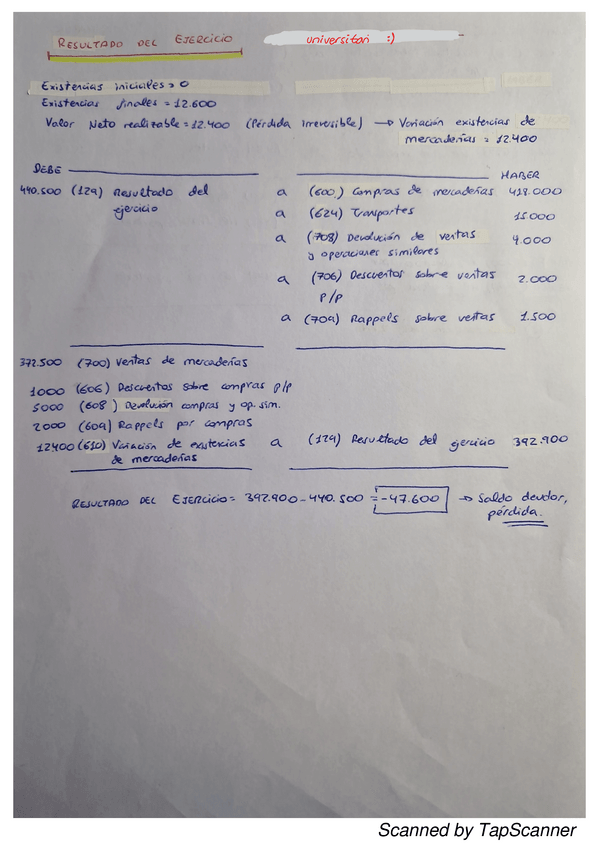 RESULTADO DEL EJERCICIO universitari :)
Existencias iniciales = 0
Existencias finales = 12.600
Valor Neto realizable = 12.400 (Pérdida irreversible) → Variación existencias de
mercaderías = 12.400
DEBE
HABER
440.500 (129) Resultado del a (600) Compras de mercaderías 418.000
ejercicio
a (624) Transportes 15.000
a (708) Devolución de ventas 4.000
y operaciones similares
a (706) Descuentos sobre ventas 2.000
P/P
a (709) Rappels sobre ventas 1.500
372.500 (700) Ventas de mercaderías
1000 (606) Descuentos sobre compras p/p
5000 (608) Devolución compras y op. sim.
2000 (609) Rappels por compras
12400 (610) Variación de existencias a (129) Resultado del ejercicio 392.900
de mercaderías
RESULTADO DEL EJERCICIO = 392.900 - 440.500 = -47.600 → Saldo deudor,
pérdida.
Scanned by TapScanner